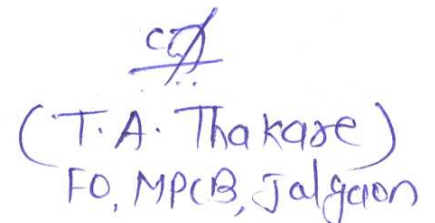 (T. A. Thakare)
FO, MPCB, Jalgaon